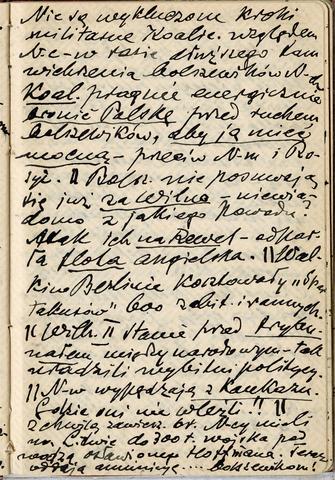 Nie są wykluczone kroki
militarne Koalic. względem
N-c-w razie dłuższego kum
bolszewików N-
Koal. pragnie energicznie
bronić Polskę przed ruchem
bolszewików, aby ją mieć
mocną - przeciw N-m i Ro-
syi. || Bolsz. nie posuwają
się już za Wilno - niewia-
domo z jakiego powodu?
Atak ich na Rewel - odpar-
ła flota angielska. ||Wal-
ki w Berlinie kosztowały "Spar
takusów" 600 zabit. i rannych.
|| Wilh. II stanie przed trybu-
nałem międzynarodowym - tak
uradzili wybitni politycy.
|| N-w wypędzają z Kaukazu.
Gdzie oni nie wleźli!! ||
Z chwilą zawiesz. br. N-cy mieli
na Litwie do 300 t. wojska pod
wodzą osławionego Hoffmana. Teraz
amunicję.... bolszewikom!